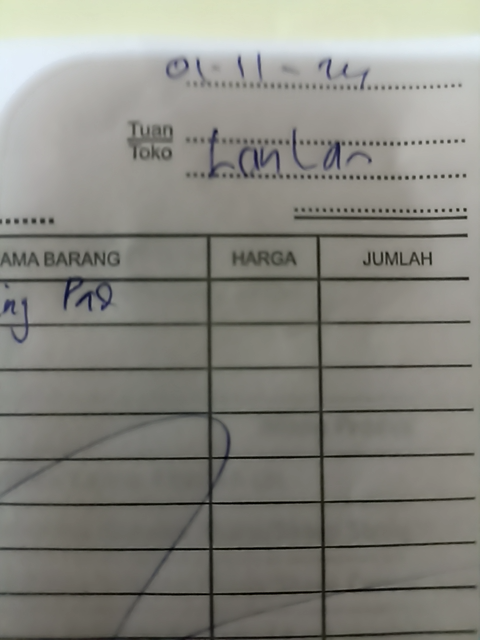 01-11-24
Tuan
Toko Lanlan
AMA BARANG HARGA JUMLAH
ing